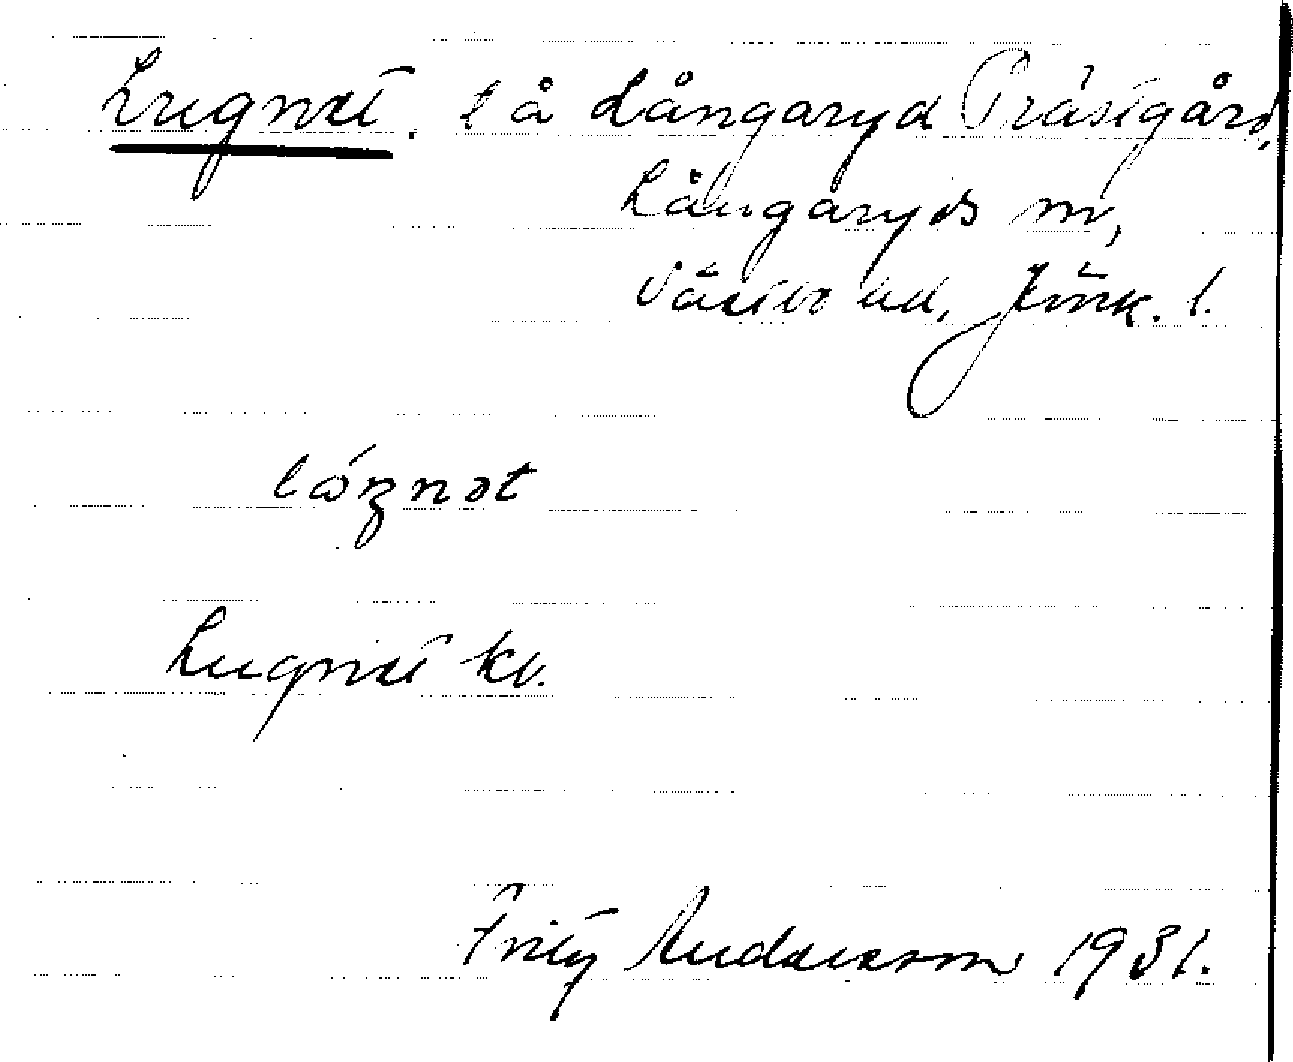 Lugnet. l å Långaryd Prästgård,
Långaryds sn,
Västbo hd, Jönk. l.
Lugnet kv.
Fritz Andersson 1931.